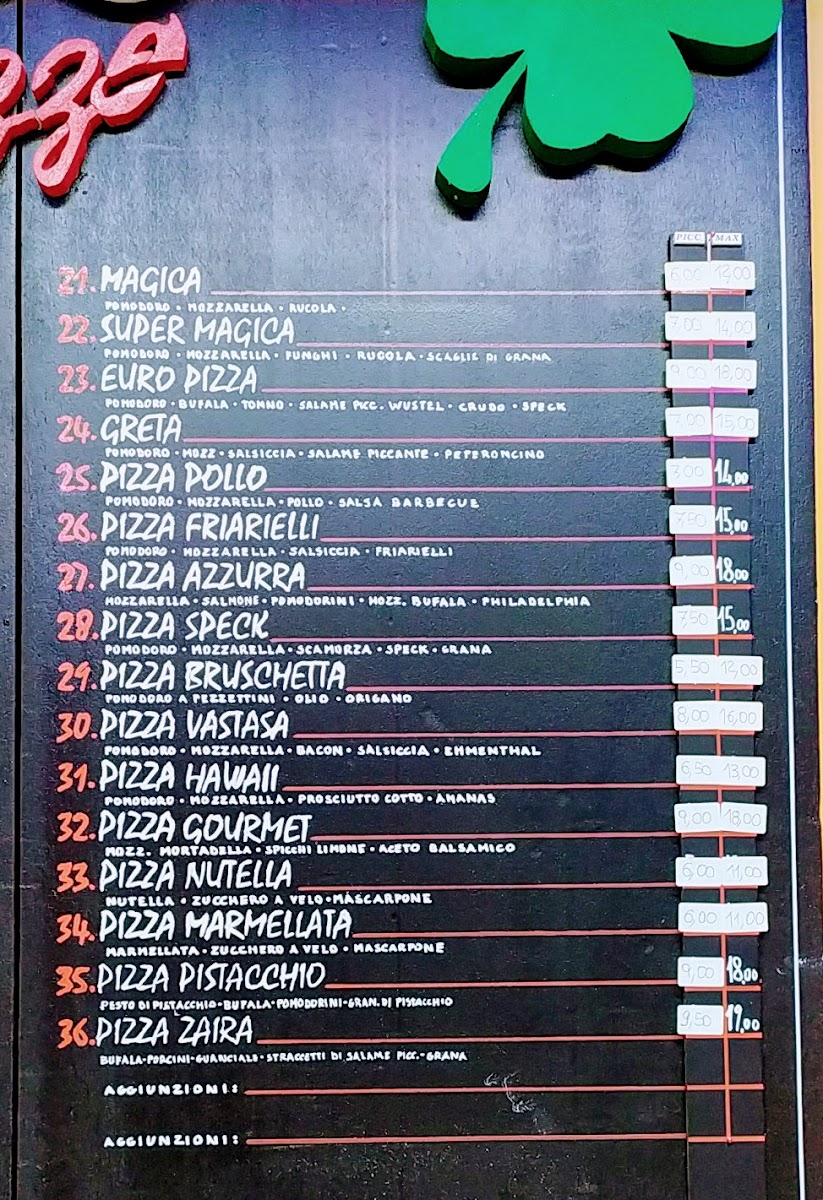 PICC. MAX
21. MAGICA 6,00 12,00
POMODORO • MOZZARELLA • RUCOLA •
22. SUPER MAGICA 7,00 14,00
POMODORO • MOZZARELLA • FUNGHI • RUCOLA • SCAGLIE DI GRANA
23. EURO PIZZA 9,00 18,00
POMODORO • BUFALA • TONNO • SALAME PICC. WUSTEL • CRUDO • SPECK
24. GRETA 7,00 15,00
POMODORO • MOZZ • SALSICCIA • SALAME PICCANTE • PEPERONCINO
25. PIZZA POLLO 7,00 14,00
POMODORO • MOZZARELLA • POLLO • SALSA BARBECUE
26. PIZZA FRIARIELLI 7,50 15,00
POMODORO • MOZZARELLA • SALSICCIA • FRIARIELLI
27. PIZZA AZZURRA 9,00 18,00
MOZZARELLA • SALMONE • POMODORINI • MOZZ. BUFALA • PHILADELPHIA
28. PIZZA SPECK 7,50 15,00
POMODORO • MOZZARELLA • SCAMORZA • SPECK • GRANA
29. PIZZA BRUSCHETTA 5,50 12,00
POMODORO A PEZZETTINI • OLIO • ORIGANO
30. PIZZA VASTASA 8,00 16,00
POMODORO • MOZZARELLA • BACON • SALSICCIA • EMMENTHAL
31. PIZZA HAWAII 6,50 13,00
POMODORO • MOZZARELLA • PROSCIUTTO COTTO • ANANAS
32. PIZZA GOURMET 9,00 18,00
MOZZ. MORTADELLA • SPICCHI LIMONE • ACETO BALSAMICO
33. PIZZA NUTELLA 6,00 11,00
NUTELLA • ZUCCHERO A VELO • MASCARPONE
34. PIZZA MARMELLATA 6,00 11,00
MARMELLATA • ZUCCHERO A VELO • MASCARPONE
35. PIZZA PISTACCHIO 9,00 18,00
PESTO DI PISTACCHIO-BUFALA-POMODORINI-GRAN. DI PISTACCHIO
36. PIZZA ZAIRA 9,50 19,00
BUFALA-PORCINI-GUANCIALE-STRACCETTI DI SALAME PICC.-GRANA
AGGIUNZIONI:
AGGIUNZIONI: